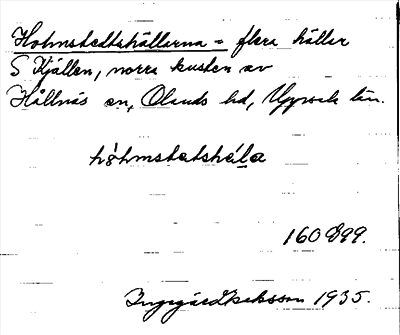 Holmstedtshällarna = flera hällar
S Kjällen, norra kusten av
Hållnäs sn, Olands hd, Uppsala län.
hòlmstatshäla
160 899.
Ingegärd Isaksson 1935.